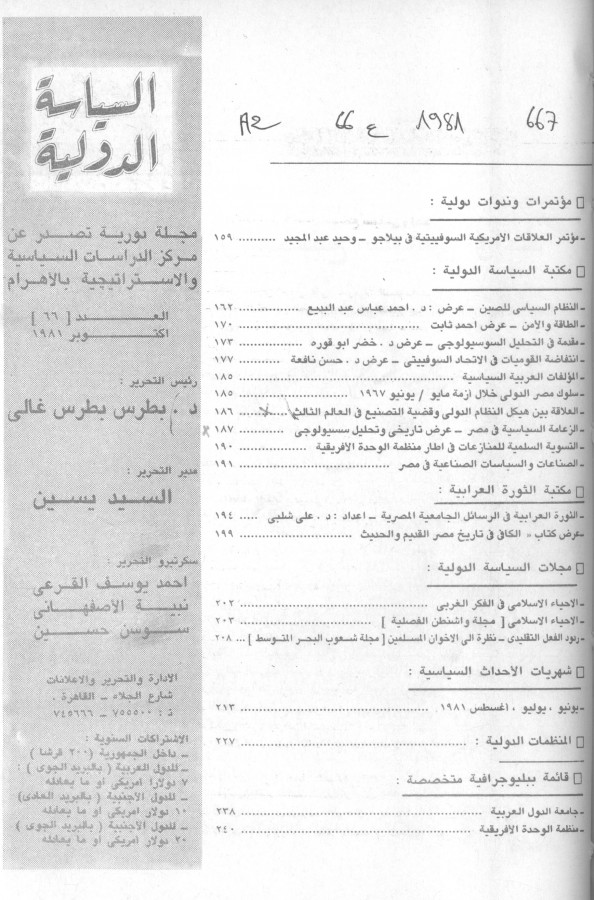 A2 66 ع 1981 667
السياسة
الدولية
مجلة دورية تصدر عن
مركز الدراسات السياسية
والاستراتيجية بالأهرام
العدد [ ٦٦ ]
اكتوبر ١٩٨١
رئيس التحرير :
د . بطرس بطرس غالى
مدير التحرير :
السيد يسين
سكرتيرو التحرير :
احمد يوسف القرعى
نبية الأصفهانى
سوسن حسين
الادارة والتحرير والاعلانات
شارع الجلاء ـ القاهرة .
ت : ٧٥٥٥٠٠ ـ ٧٤٥٦٦٦
الاشتراكات السنوية :
ـ داخل الجمهورية (٢٠٠ قرشا )
ـ للدول العربية ( بالبريد الجوى ) :
٧ دولارا امريكى او ما يعادله
ـ للدول الأجنبية ( بالبريد العادى)
١٠ دولار امريكى او ما يعادله
ـ للدول الأجنبية ( بالبريد الجوى )
٢٠ دولار امريكى او ما يعادله
مؤتمرات وندوات دولية :
ـ مؤتمر العلاقات الأمريكية السوفييتية فى بيلاجو ـ وحيد عبد المجيد .......... ١٥٩
مكتبة السياسة الدولية :
ـ النظام السياسى للصين ـ عرض : د . احمد عباس عبد البديع .......... ١٦٢
ـ الطاقة والأمن ـ عرض احمد ثابت .......... ١٧٠
ـ مقدمة فى التحليل السوسيولوجى ـ عرض د . خضر ابو قوره .......... ١٧٣
ـ انتفاضة القوميات فى الاتحاد السوفييتى ـ عرض د . حسن نافعة .......... ١٧٧
ـ المؤلفات العربية السياسية .......... ١٨٥
ـ سلوك مصر الدولى خلال ازمة مايو / يونيو ١٩٦٧ .......... ١٨٥
ـ العلاقة بين هيكل النظام الدولى وقضية التصنيع فى العالم الثالث .......... ١٨٦
ـ الزعامة السياسية فى مصر ـ عرض تاريخى وتحليل سسيولوجى .......... ١٨٧
ـ التسوية السلمية للمنازعات فى اطار منظمة الوحدة الأفريقية .......... ١٩٠
ـ الصناعات والسياسات الصناعية فى مصر .......... ١٩١
مكتبة الثورة العرابية :
ـ الثورة العرابية فى الرسائل الجامعية المصرية ـ اعداد : د . على شلبى ..... ١٩٤
ـ عرض كتاب « الكافى فى تاريخ مصر القديم والحديث .......... ١٩٩
مجلات السياسة الدولية :
ـ الاحياء الاسلامى فى الفكر الغربى .......... ٢٠٢
ـ الاحياء الاسلامى [ مجلة واشنطن الفصلية ] .......... ٢٠٣
ـ ردود الفعل التقليدى ـ نظرة الى الاخوان المسلمين [ مجلة شعوب البحر المتوسط ] ... ٢٠٨
شهريات الأحداث السياسية :
ـ يونيو ، يوليو ، اغسطس ١٩٨١ .......... ٢١٣
المنظمات الدولية : .......... ٢٢٧
قائمة ببليوجرافية متخصصة :
ـ جامعة الدول العربية .......... ٢٣٨
ـ منظمة الوحدة الأفريقية .......... ٢٤٠